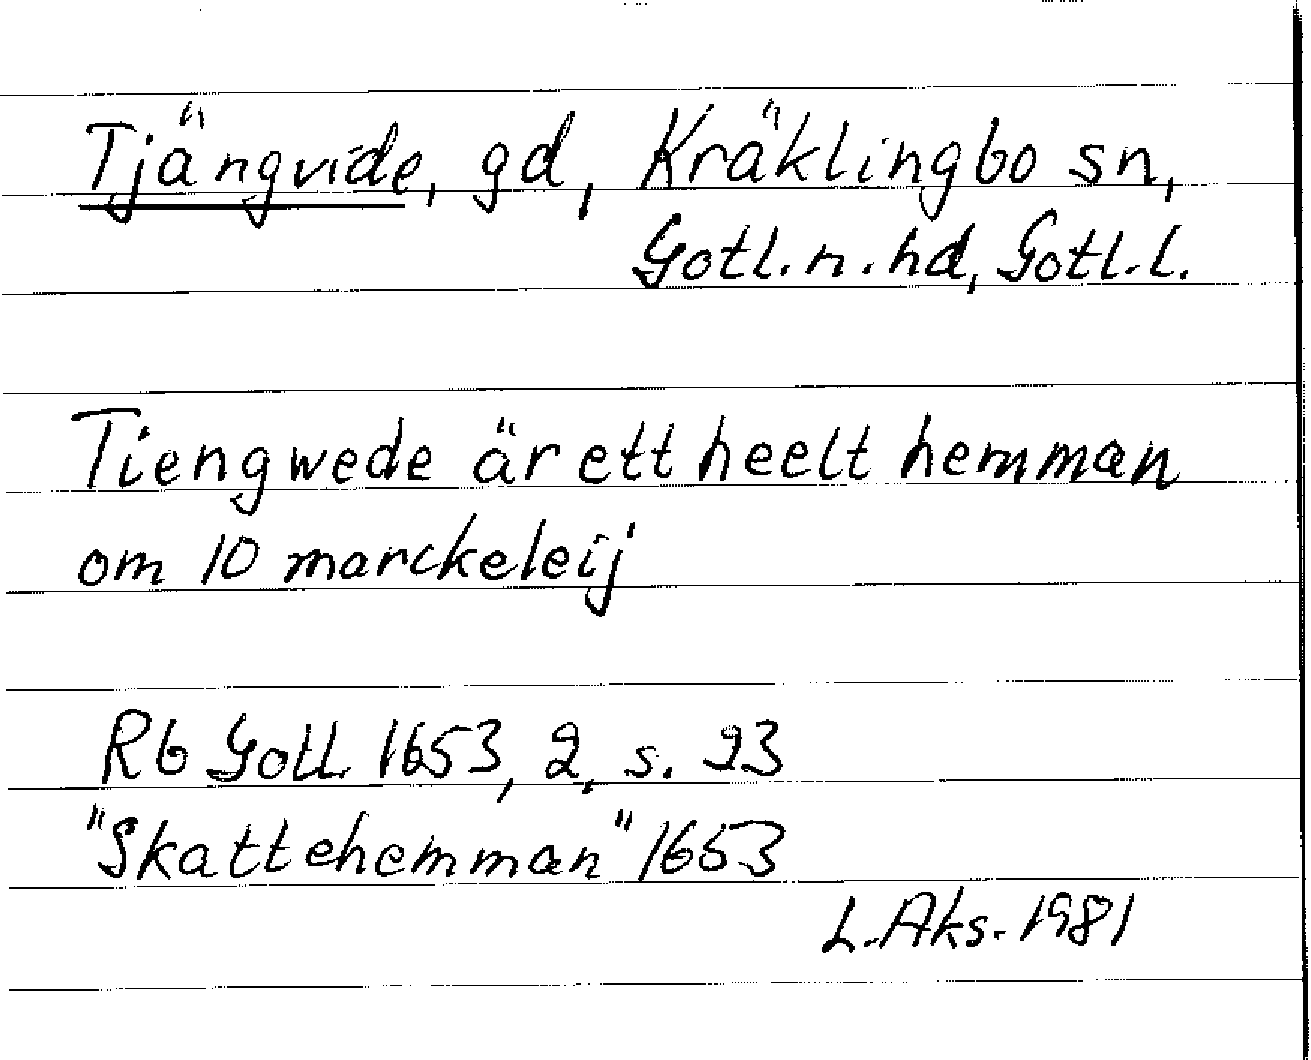 Tjängvide, gd, Kräklingbo sn,
Gotl. n. hd, Gotl. l.
Tiengwede är ett heelt hemman
om 10 marckeleij
Rb Gotl. 1653, 2, s. 23
"Skattehemman" 1653
L. Aks. 1981